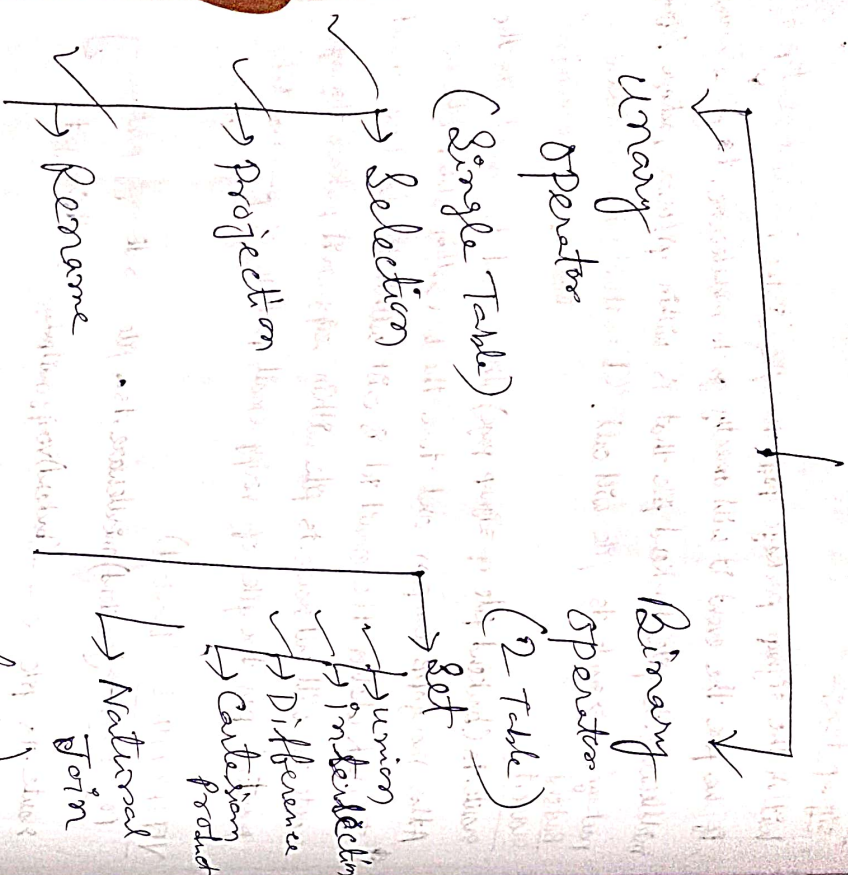 Unary
operator
(Single Table)
Selection
Projection
Rename
Binary
operator
(2 Table)
Set
union
Difference
Cartesian
Product
Natural
Join